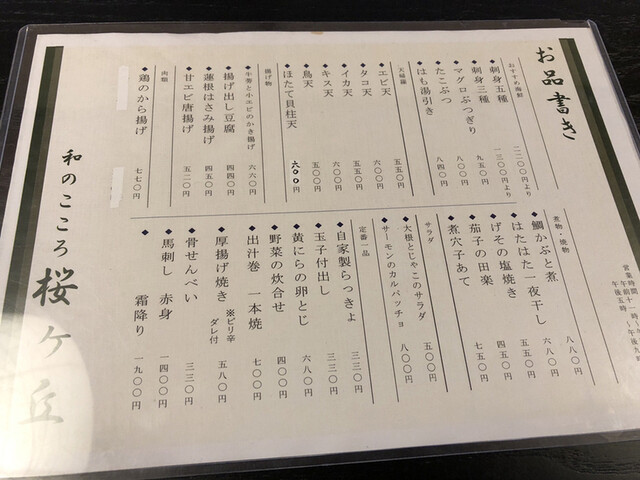 お品書き
おすすめ海鮮
◆刺身五種 二二〇〇円より
◆刺身三種 一三〇〇円より
◆マグロぶつぎり 九五〇円
◆たこぶつ 八〇〇円
◆はも湯引き 八四〇円
天婦羅
◆エビ天 五五〇円
◆タコ天 六〇〇円
◆イカ天 五五〇円
◆キス天 六〇〇円
◆鳥天 五〇〇円
◆ほたて貝柱天 六〇〇円
揚げ物
◆牛蒡と小エビのかき揚げ 六六〇円
◆揚げ出し豆腐 四四〇円
◆蓮根はさみ揚げ 四五〇円
◆甘エビ唐揚げ 五二〇円
肉類
◆鶏のから揚げ 七七〇円
営業時間
午前十一時〜
午後五時
煮物・焼物
◆鯛かぶと煮 八八〇円
◆はたはた一夜干し 六八〇円
◆げその塩焼き 五五〇円
◆茄子の田楽 四五〇円
◆煮穴子あて 七五〇円
サラダ
◆大根とじゃこのサラダ 五〇〇円
◆サーモンのカルパッチョ 八〇〇円
定番一品
◆自家製らっきょ 三三〇円
◆玉子付出し 三三〇円
◆黄にらの卵とじ 六八〇円
◆野菜の炊合せ 四〇〇円
◆出汁巻 一本焼 七〇〇円
◆厚揚げ焼き ※ピリ辛ダレ付 五八〇円
◆骨せんべい 三三〇円
◆馬刺し 赤身 一四〇〇円
◆ 霜降り 一九〇〇円
和のこころ 桜ケ丘